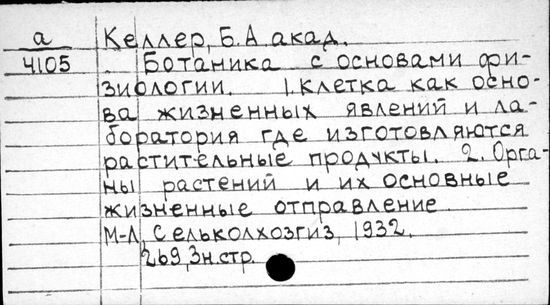 а
4105
Келлер, Б.А акад.
Ботаника с основами фи-
зиологии. 1. Клетка как осно-
ва жизненных явлений и ла-
боратория где изготовляются
растительные продукты. 2. Орга-
ны растений и их основные
жизненные отправление
М-Л, Сельколхозгиз, 1932.
269,3н.стр.